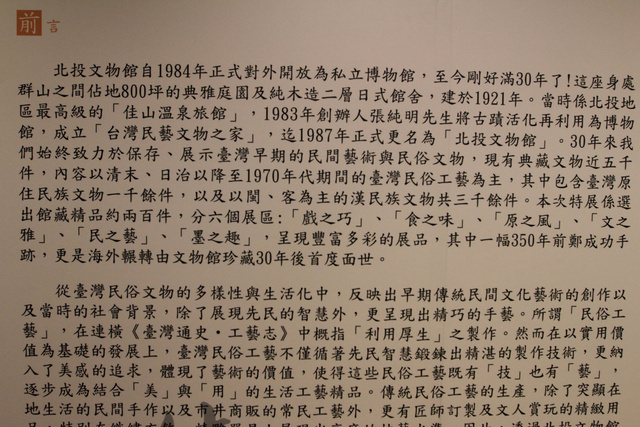 前言
北投文物館自1984年正式對外開放為私立博物館，至今剛好滿30年了！這座身處
群山之間佔地800坪的典雅庭園及純木造二層日式館舍，建於1921年。當時係北投地
區最高級的「佳山溫泉旅館」，1983年創辦人張純明先生將古蹟活化再利用為博物
館，成立「台灣民藝文物之家」，迄1987年正式更名為「北投文物館」。30年來我
們始終致力於保存、展示臺灣早期的民間藝術與民俗文物，現有典藏文物近五千
件，內容以清末、日治以降至1970年代期間的臺灣民俗工藝為主，其中包含臺灣原
住民族文物一千餘件，以及以閩、客為主的漢民族文物共三千餘件。本次特展係選
出館藏精品約兩百件，分六個展區:「戲之巧」、「食之味」、「原之風」、「文之
雅」、「民之藝」、「墨之趣」，呈現豐富多彩的展品，其中一幅350年前鄭成功手
跡，更是海外輾轉由文物館珍藏30年後首度面世。
從臺灣民俗文物的多樣性與生活化中，反映出早期傳統民間文化藝術的創作以
及當時的社會背景，除了展現先民的智慧外，更呈現出精巧的手藝。所謂「民俗工
藝」，在連橫《臺灣通史·工藝志》中概指「利用厚生」之製作。然而在以實用價
值為基礎的發展上，臺灣民俗工藝不僅循著先民智慧鍛鍊出精湛的製作技術，更納
入了美感的追求，體現了藝術的價值，使得這些民俗工藝既有「技」也有「藝」，
逐步成為結合「美」與「用」的生活工藝精品。傳統民俗工藝的生產，除了突顯在
地生活的民間手作以及市井商販的常民工藝外，更有匠師訂製及文人賞玩的精緻用